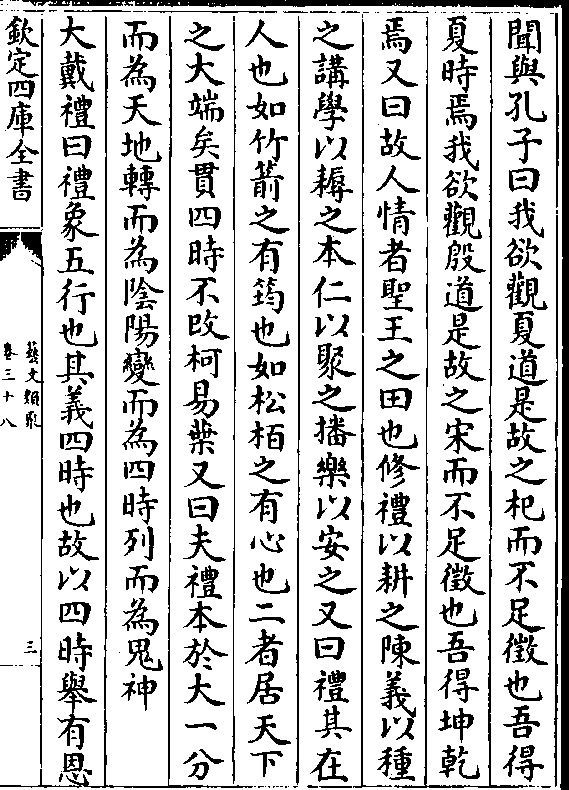 聞與孔子曰我欲觀夏道是故之杞而不足徵也吾得
夏時焉我欲觀殷道是故之宋而不足徵也吾得坤乾
焉又曰故人情者聖王之田也修禮以耕之陳義以種
之講學以耨之本仁以聚之播樂以安之又曰禮其在
人也如竹箭之有筠也如松栢之有心也二者居天下
之大端矣貫四時不改柯易葉又曰夫禮本於大一分
而為天地轉而為陰陽變而為四時列而為鬼神
大戴禮曰禮象五行也其義四時也故以四時舉有恩
欽定四庫全書
藝文類聚
卷三十八
三